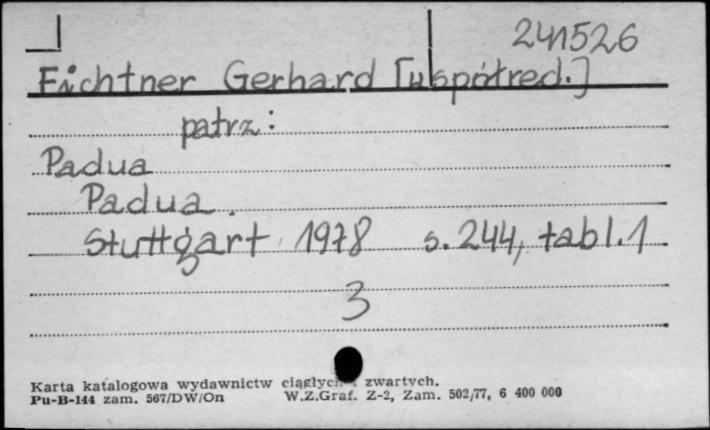 241526
Fichtner Gerhard [współred.]
patrz:
Padua
Padua.
Stuttgart 1978 s. 244, tabl. 1
3
Karta katalogowa wydawnictw ciągłych i zwartych.
Pu-B-144 zam. 567/DW/On W.Z.Graf. Z-2, Zam. 502/77, 6 400 000